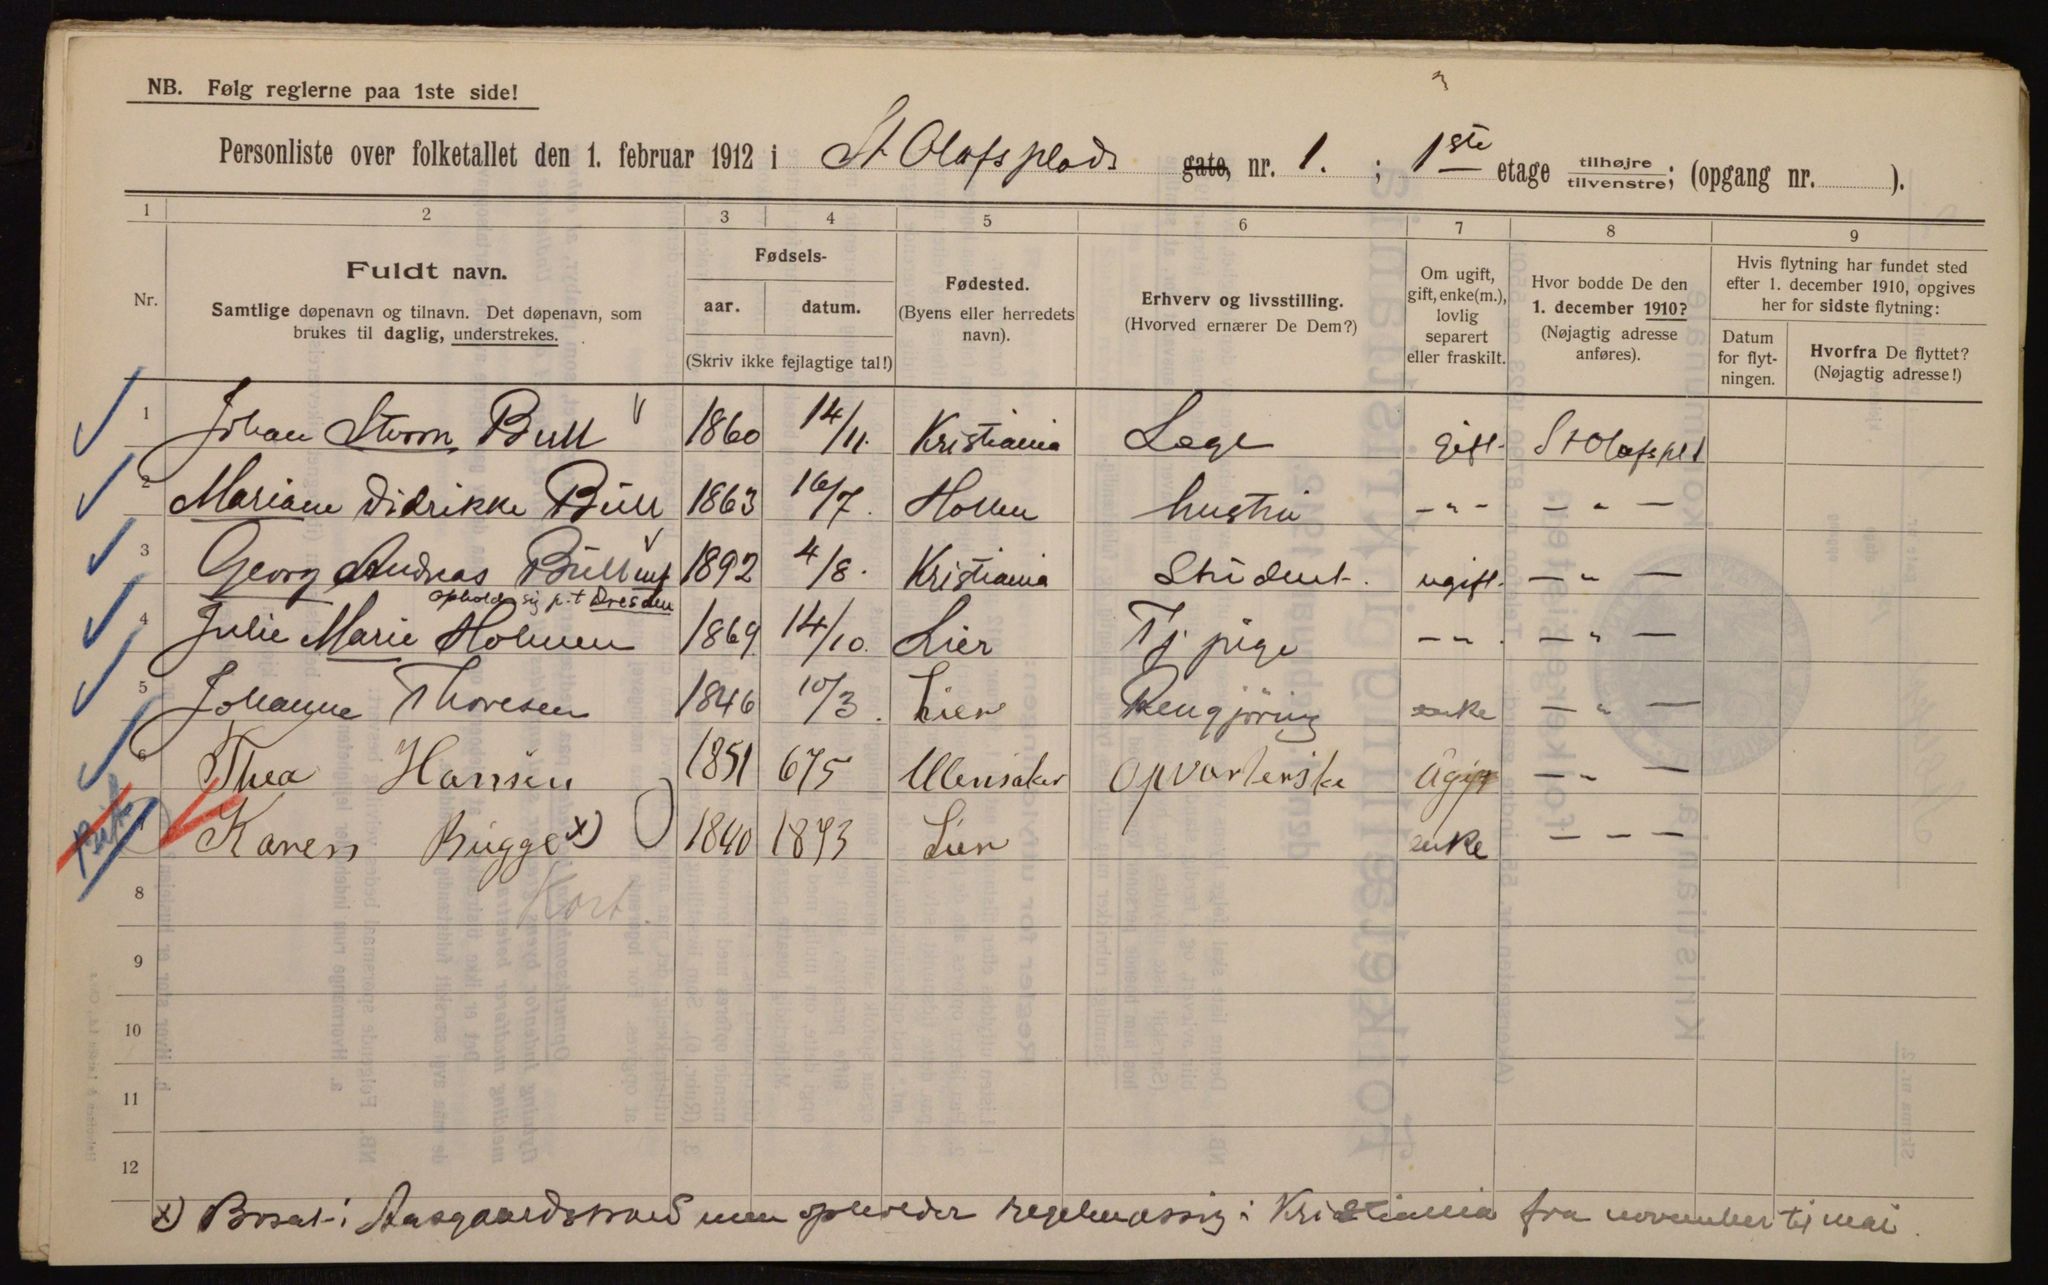 NB. Følg reglerne paa 1ste side!
Personliste over folketallet den 1. februar 1912 i St Olafsplads gate, nr. 1. ; 1ste etage tilhøjre/tilvenstre; (opgang nr. ).
1 2 3 4 5 6 7 8 9
Nr.
Fuldt navn.
Samtlige døpenavn og tilnavn. Det døpenavn, som
brukes til daglig, understrekes.
Fødsels-
aar. datum.
(Skriv ikke fejlagtige tal!)
Fødested.
(Byens eller herredets
navn).
Erhverv og livsstilling.
(Hvorved ernærer De Dem?)
Om ugift,
gift, enke(m.),
lovlig
separert
eller fraskilt.
Hvor bodde De den
1. december 1910?
(Nøjagtig adresse
anføres).
Hvis flytning har fundet sted
efter 1. december 1910, opgives
her for sidste flytning:
Datum
for flyt-
ningen.
Hvorfra De flyttet?
(Nøjagtig adresse!)
1 Johan Storm Bull 1860 14/11. Kristiania Læge gift St Olafspl 1
2 Mariane Didrikke Bull 1863 16/7. Hollen hustru - " - — " —
3 Georg Andreas Bull 1892 4/8. Kristiania Student. ugift. — " —
opholder sig p.t Dresden
4 Julie Marie Holmen 1869 14/10. Lier Tj pige - " - — " —
5 Johanne Thoresen 1846 10/3. Lier Rengjöring enke — " —
6 Thea Hansen 1851 6/5 Ullensaker Opvarterske Ugift — " —
7 Karen Bugge x) 1840 Lier enke — — —
Kort
8
9
10
11
12
x) Bosat i Aasgaardstrand men opholder regelmæssig i Kristiania fra november til mai.